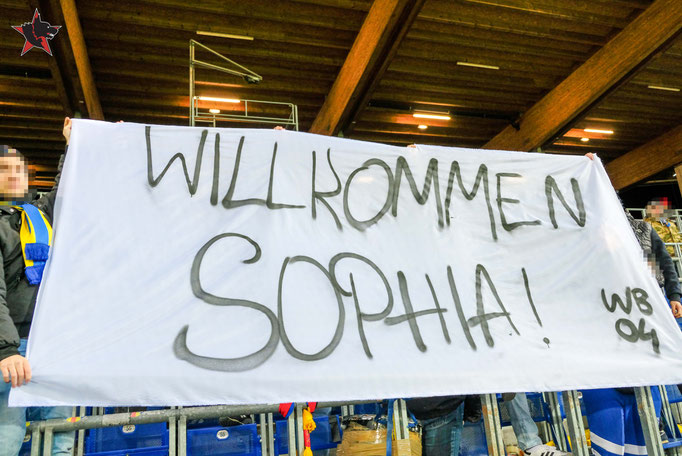 WILLKOMMEN
SOPHIA!
WB
04